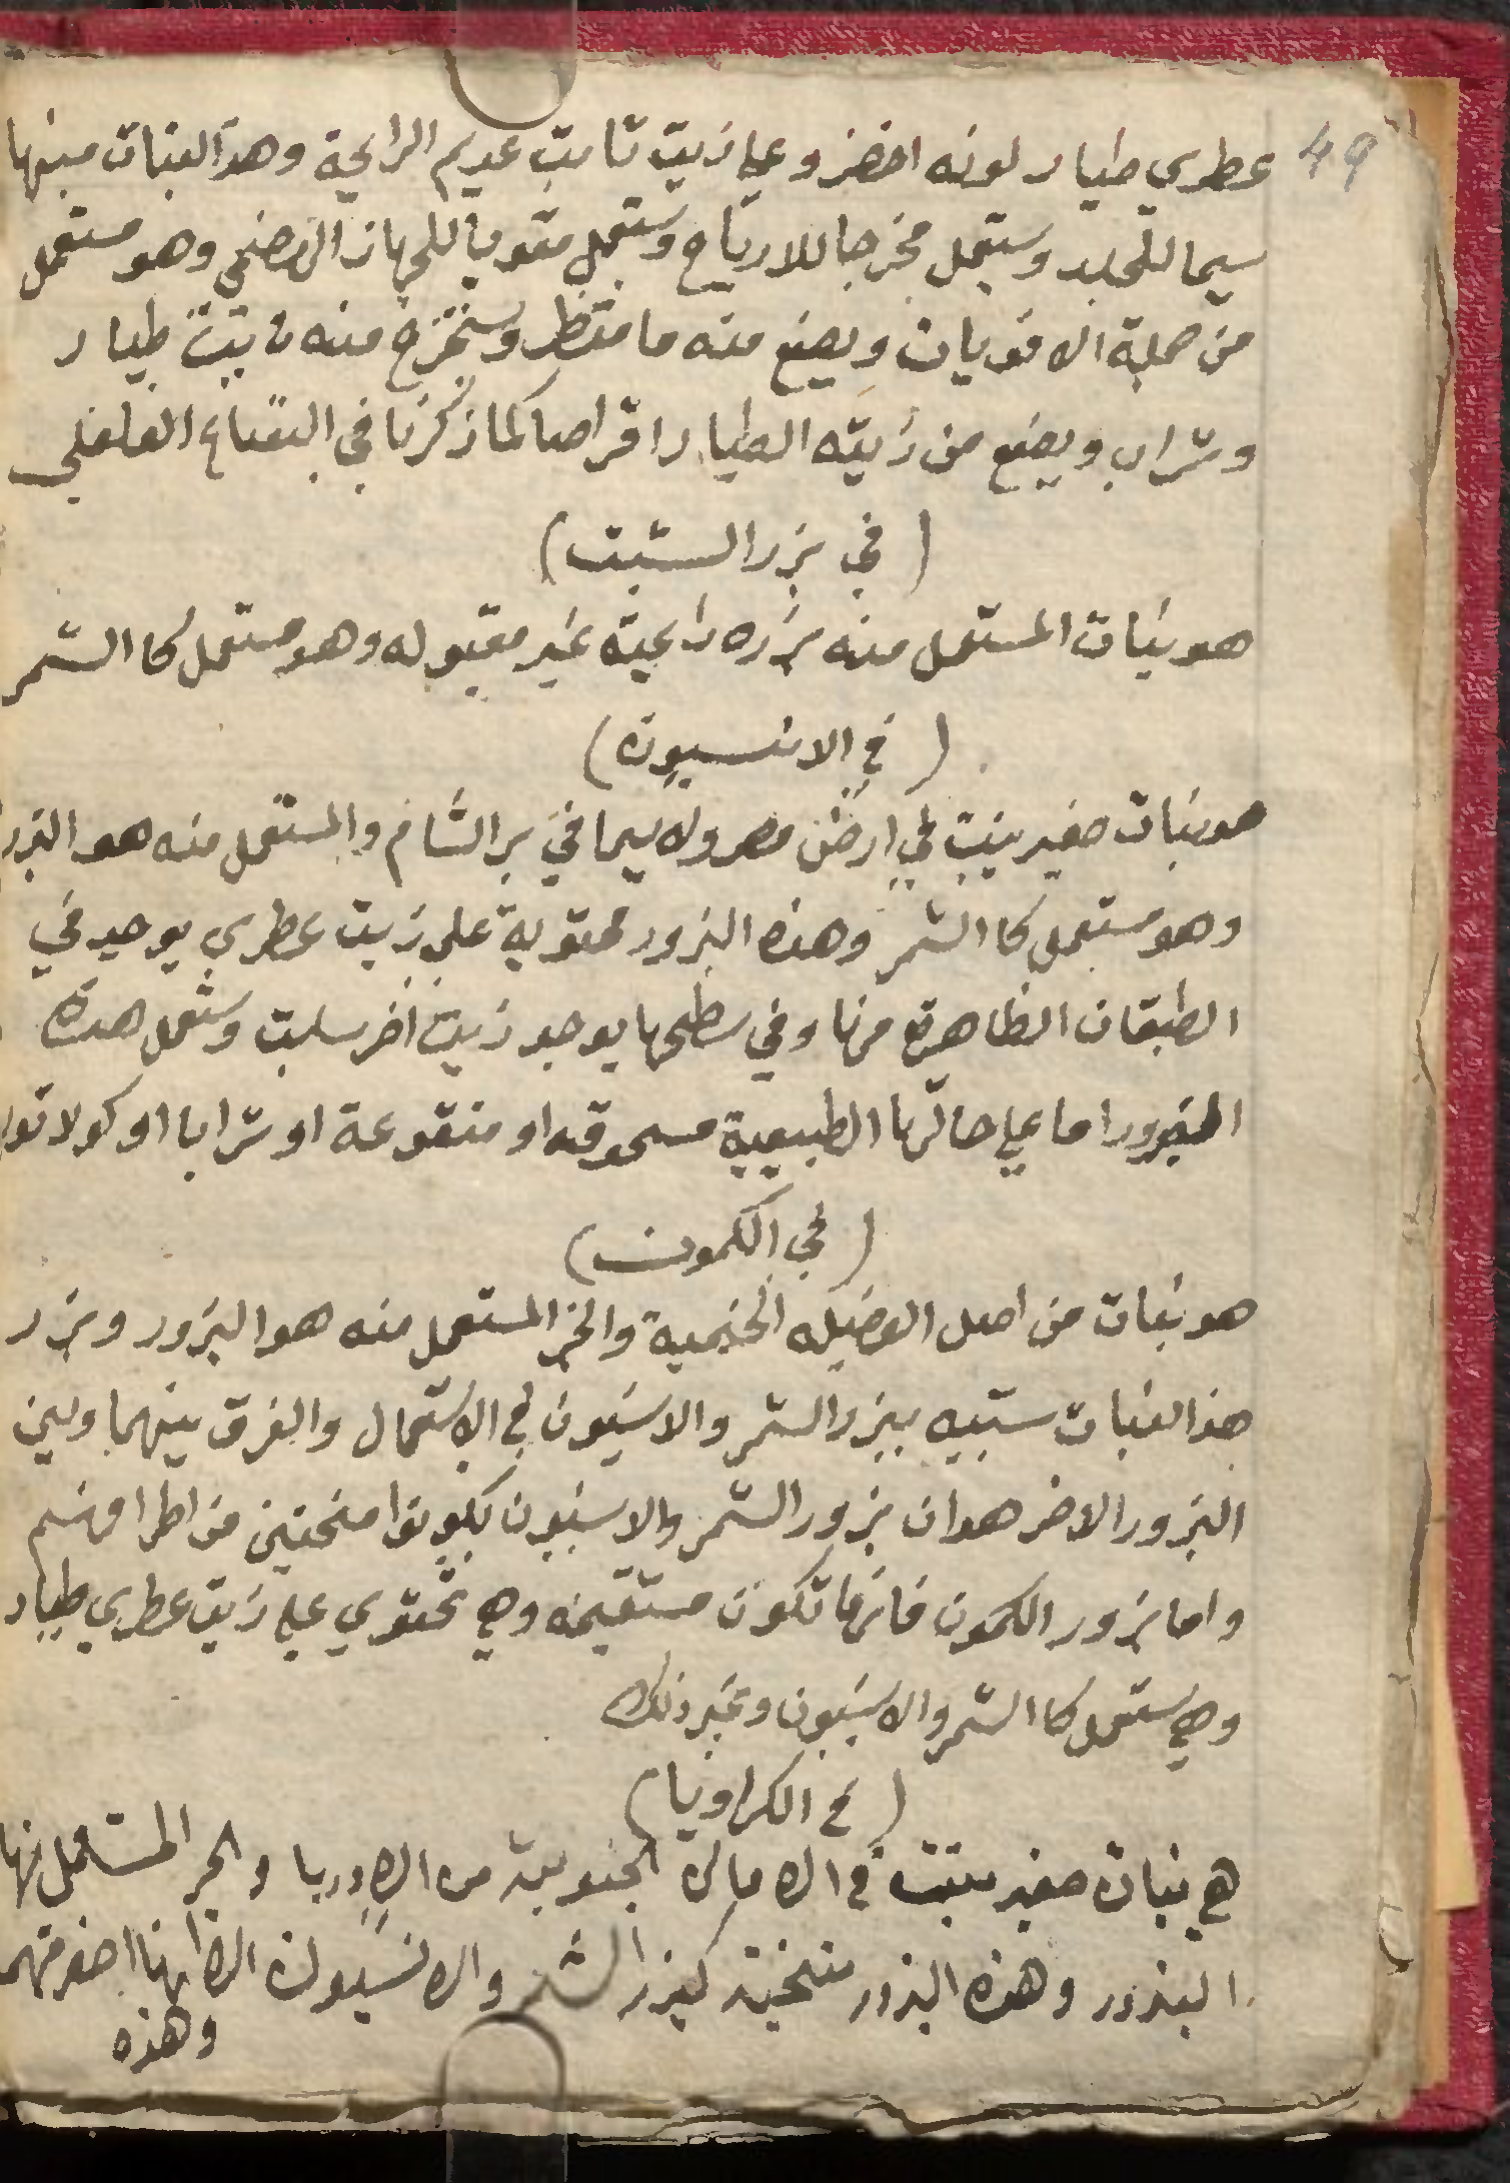 49
عطري طيار لونه اخضر وعلي زيت ثابت عديم الرايحة وهذا النبات منبها
سيما للجلد وستعمل مخرجا للارياح وستعمل مقويا للجهاز الهضمي وهو مستعمل
من جملة الافويات ويصنع منه ما مقطر وسنخرج منه زيت طيار
وشراب ويصنع من زيته الطيار اقراصا كما ذكرنا في النعناع الفلفلي
(في بزر الشبت)
هو نبات المستعمل منه بزره رايحيته غير مقبوله وهو مستعمل كا الشمر
(في الانسيون)
هو نبات صغير ينبت في ارض مصر ولا سيما في بر الشام والمستعمل منه هو البزر
وهو مستعمل كا الشمر وهذه البزور محتوية علي زيت عطري يوجد في
الطبقات الظاهرة منها وفي سطحها يوجد زيت اخر سلبت وستعمل هذه
البزور اما علي حالتها الطبيعية مسحوقه او منقوعة او شرابا او كولاتوا
(في الكمون)
هو نبات من اصل الفضيله الخيمية والجز المستعمل منه هو البزور وبزر
هذا النبات شبيه ببزر الشمر والانسيون في الاستعمال والفرق بينهما وبين
البزور الاخر هو ان بزور الشمر والانسيون يكونوا منحنين من اطرافهم
واما بزور الكمون فانها تكون مستقيمه وهي تحتوي علي زيت عطري طيار
وهي ستعمل كا الشمر والانسيون وغير ذلك
(في الكراويا)
هي نبات صغير ينبت في الاماكن الجنوبية من الاوربا والجز المستعمل منها
البذور وهذه البذور منحنية كبزر الشمر والانسيون الا انها اصغر منهم
وهذه